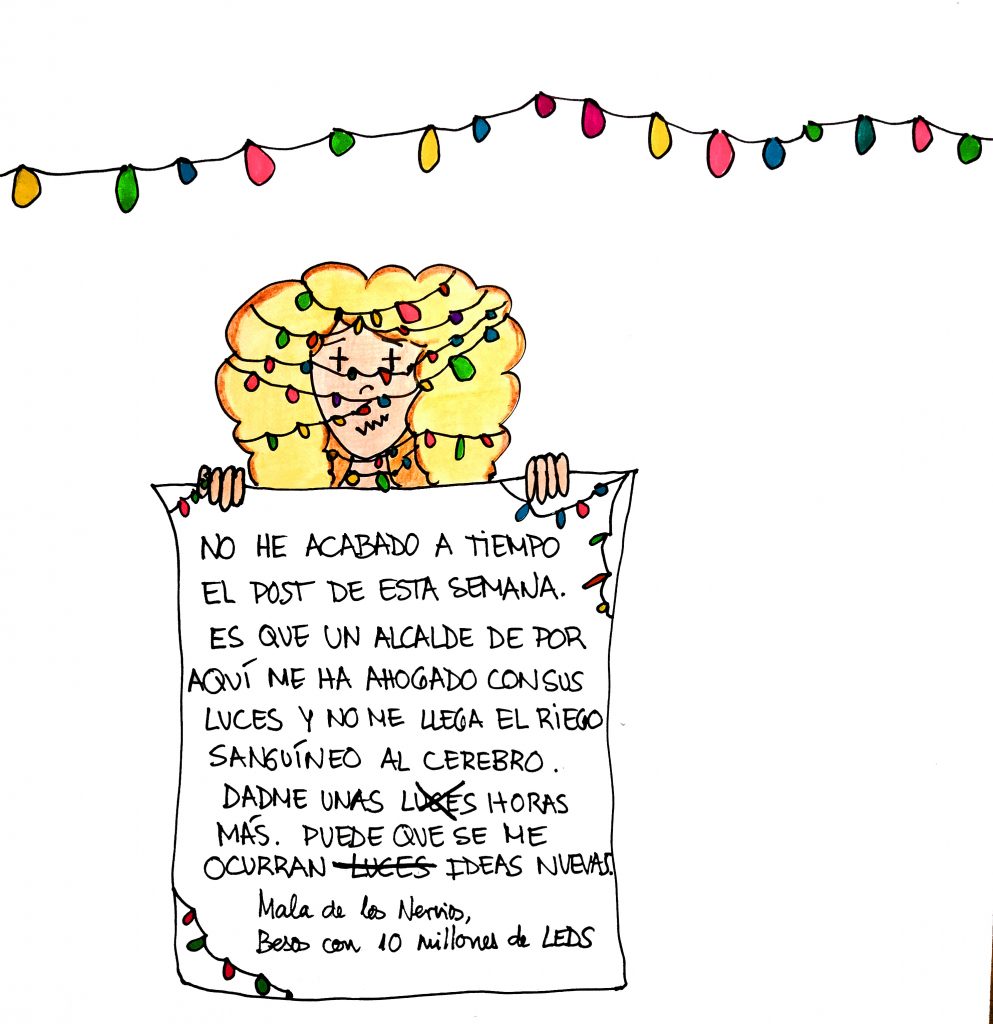 NO HE ACABADO A TIEMPO
EL POST DE ESTA SEMANA.
ES QUE UN ALCALDE DE POR
AQUÍ ME HA AHOGADO CON SUS
LUCES Y NO ME LLEGA EL RIEGO
SANGUÍNEO AL CEREBRO.
DADME UNAS LUCES HORAS
MÁS. PUEDE QUE SE ME
OCURRAN LUCES IDEAS NUEVAS.
Mala de los Nervios,
Besos con 10 millones de LEDS